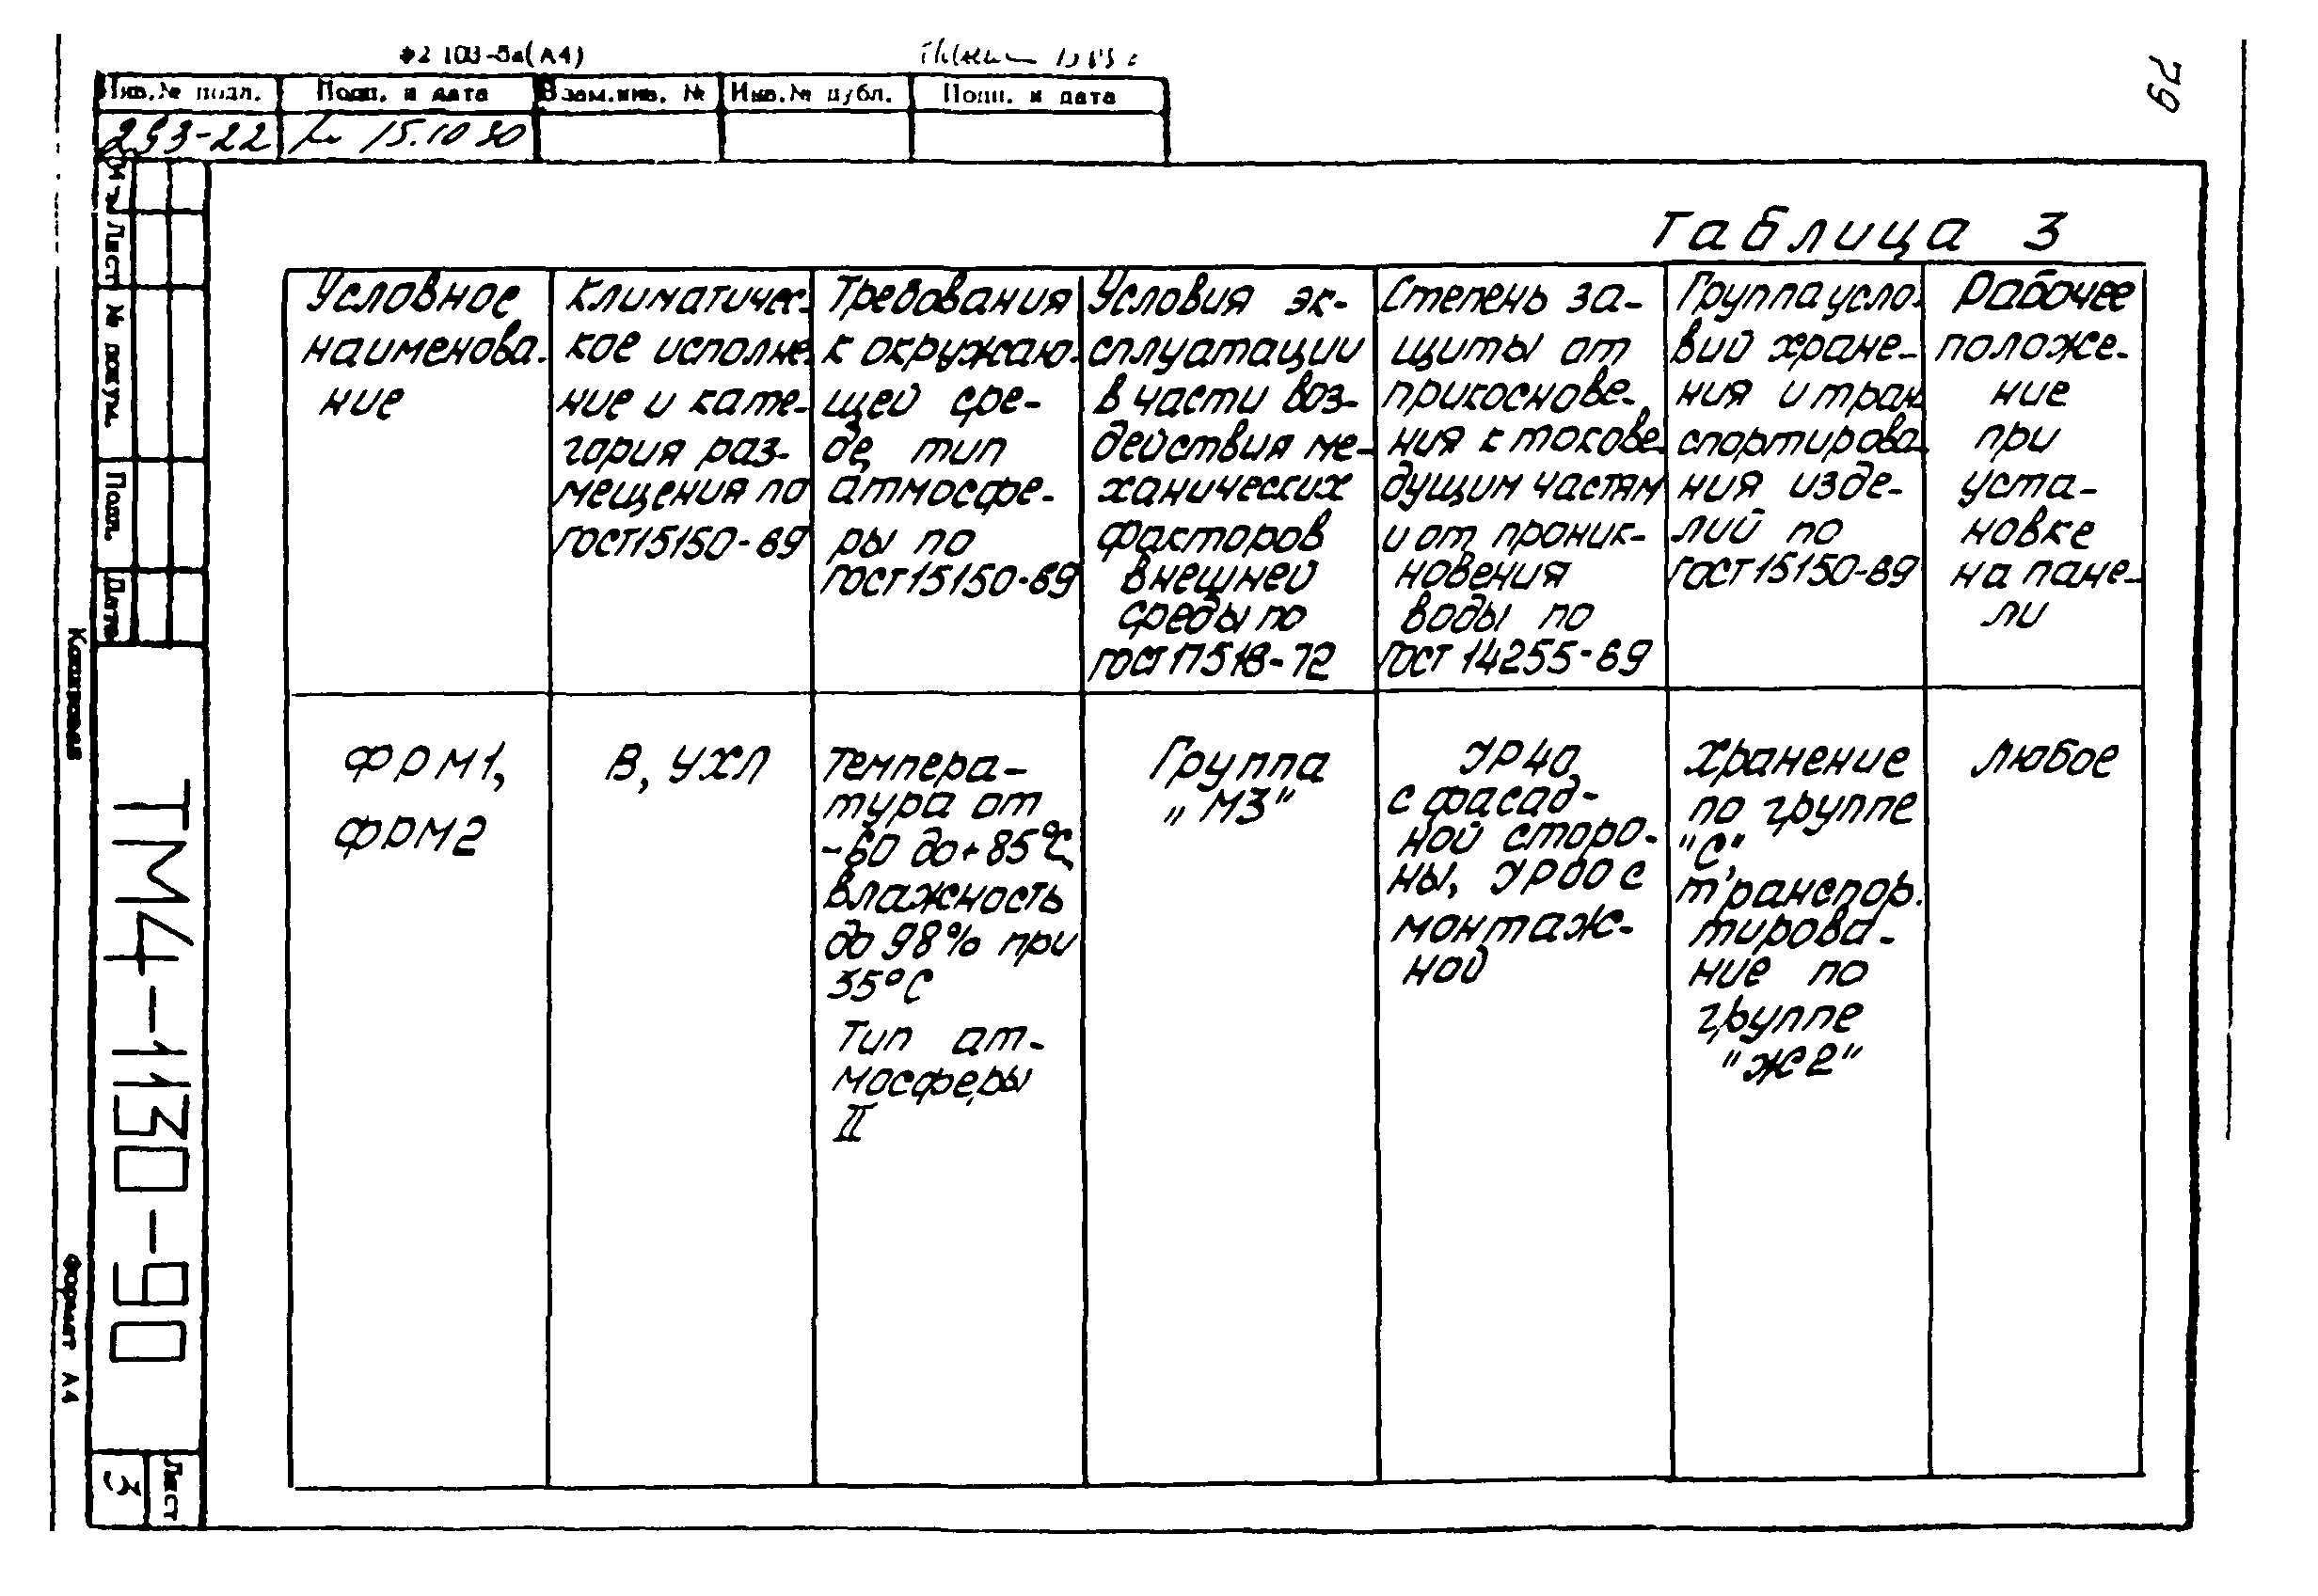 Ф2 103-5а(А4)
79
Инв.№ подл.
Подп. и дата
Взам.инв. №
Инв.№ дубл.
Подп. и дата
293-22
15.10 90
Лист
№ докум.
Подп.
Дата
Копировал
Формат А4
ТМ4-1130-90
Лист
3
Таблица 3
Условное
наименова-
ние
Климатичес-
кое исполне-
ние и кате-
гория раз-
мещения по
ГОСТ 15150-69
Требования
к окружаю-
щей сре-
де, тип
атмосфе-
ры по
ГОСТ 15150-69
Условия эк-
сплуатации
в части воз-
действия ме-
ханических
факторов
внешней
среды по
ГОСТ 17518-72
Степень за-
щиты от
прикоснове-
ния к токове-
дущим частям
и от проник-
новения
воды по
ГОСТ 14255-69
Группа усло-
вий хране-
ния и тран-
спортирова-
ния изде-
лий по
ГОСТ 15150-69
Рабочее
положе-
ние
при
уста-
новке
на пане-
ли
ФРМ1,
ФРМ2
В, УХЛ
Темпера-
тура от
-60 до +85°С,
влажность
до 98% при
35°С
Тип ат-
мосферы
II
Группа
„М3"
УР40
с фасад-
ной сторо-
ны, УР00 с
монтаж-
ной
Хранение
по группе
"С",
транспор-
тирова-
ние по
группе
"Ж2"
любое